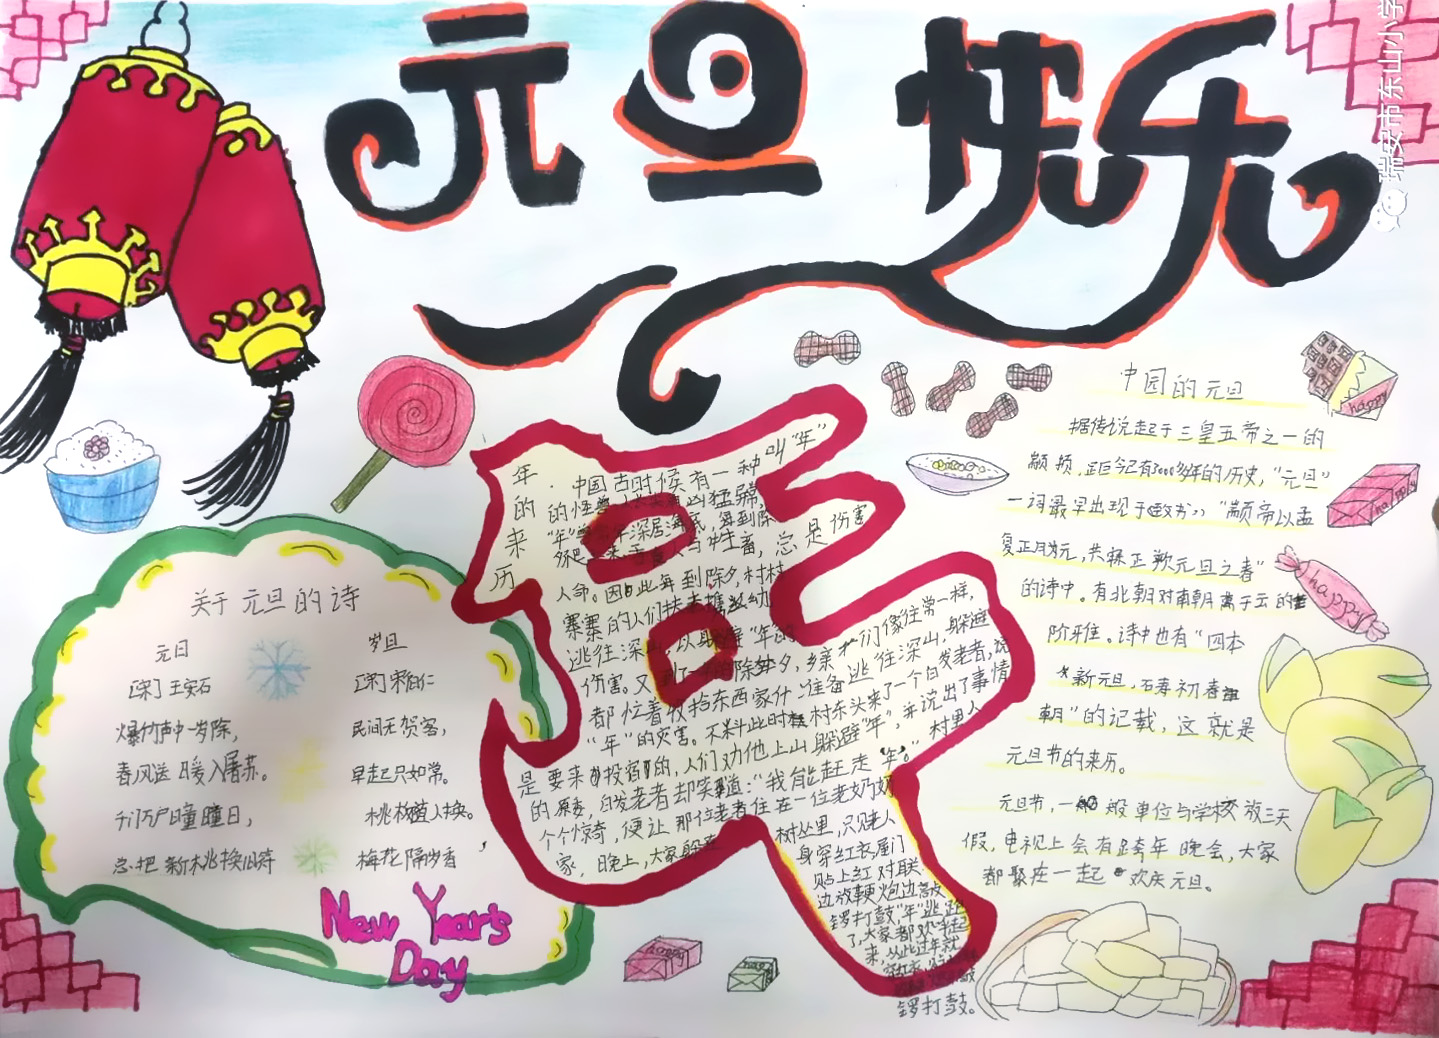 元旦快乐
瑞安市东山小学
中国的元旦
据传说起于三皇五帝之一的
颛顼,距今已有3000多年的历史,"元旦"
一词最早出现于《晋书》"颛帝以孟
夏正月为元,其实正朔元旦之春"
的诗中。有北朝对南朝萧子云的
阶雅。诗中也有"四本
新元旦,
朝"的记载,这就是
元旦节的来历。
元旦节,一般单位与学校放三天
假,电视上会有跨年晚会,大家
都聚在一起欢庆元旦。
关于元旦的诗
元日
[宋]王安石
爆竹声中一岁除,
春风送暖入屠苏。
千门万户曈曈日,
总把新桃换旧符
岁旦
[宋]宋伯仁
民间无贺客,
早起只如常。
桃板随人换。
梅花隔岁香
New Year's
Day
年的来历
中国古时候有一种叫"年"
的怪兽 凶猛
"年" 深居海底,每到除
夕 牲畜,总是伤害
人命。因此每到除夕,村村
寨寨的人们扶老携幼
逃往深山,以躲 "年"的
伤害。又 的除夕,乡亲们像往常一样,
都忙着收拾东西家什准备逃往深山,躲避
"年"的灾害。不料此时村东头来了一个白发老者,说
是要来投宿的,人们劝他上山躲避"年",并说出了事情
的原委,白发老者却笑道:"我能赶走年。"村里人
个个惊奇,便让那位老者住在一位老奶奶
家,晚上,大家躲在
树丛里,只见老人
身穿红衣,屋门
贴上红对联
边放鞭炮边敲
锣打鼓,"年"逃跑
了,大家都欢呼起
来,从此过年就
锣打鼓。
happy
happy
happy
happy
happy